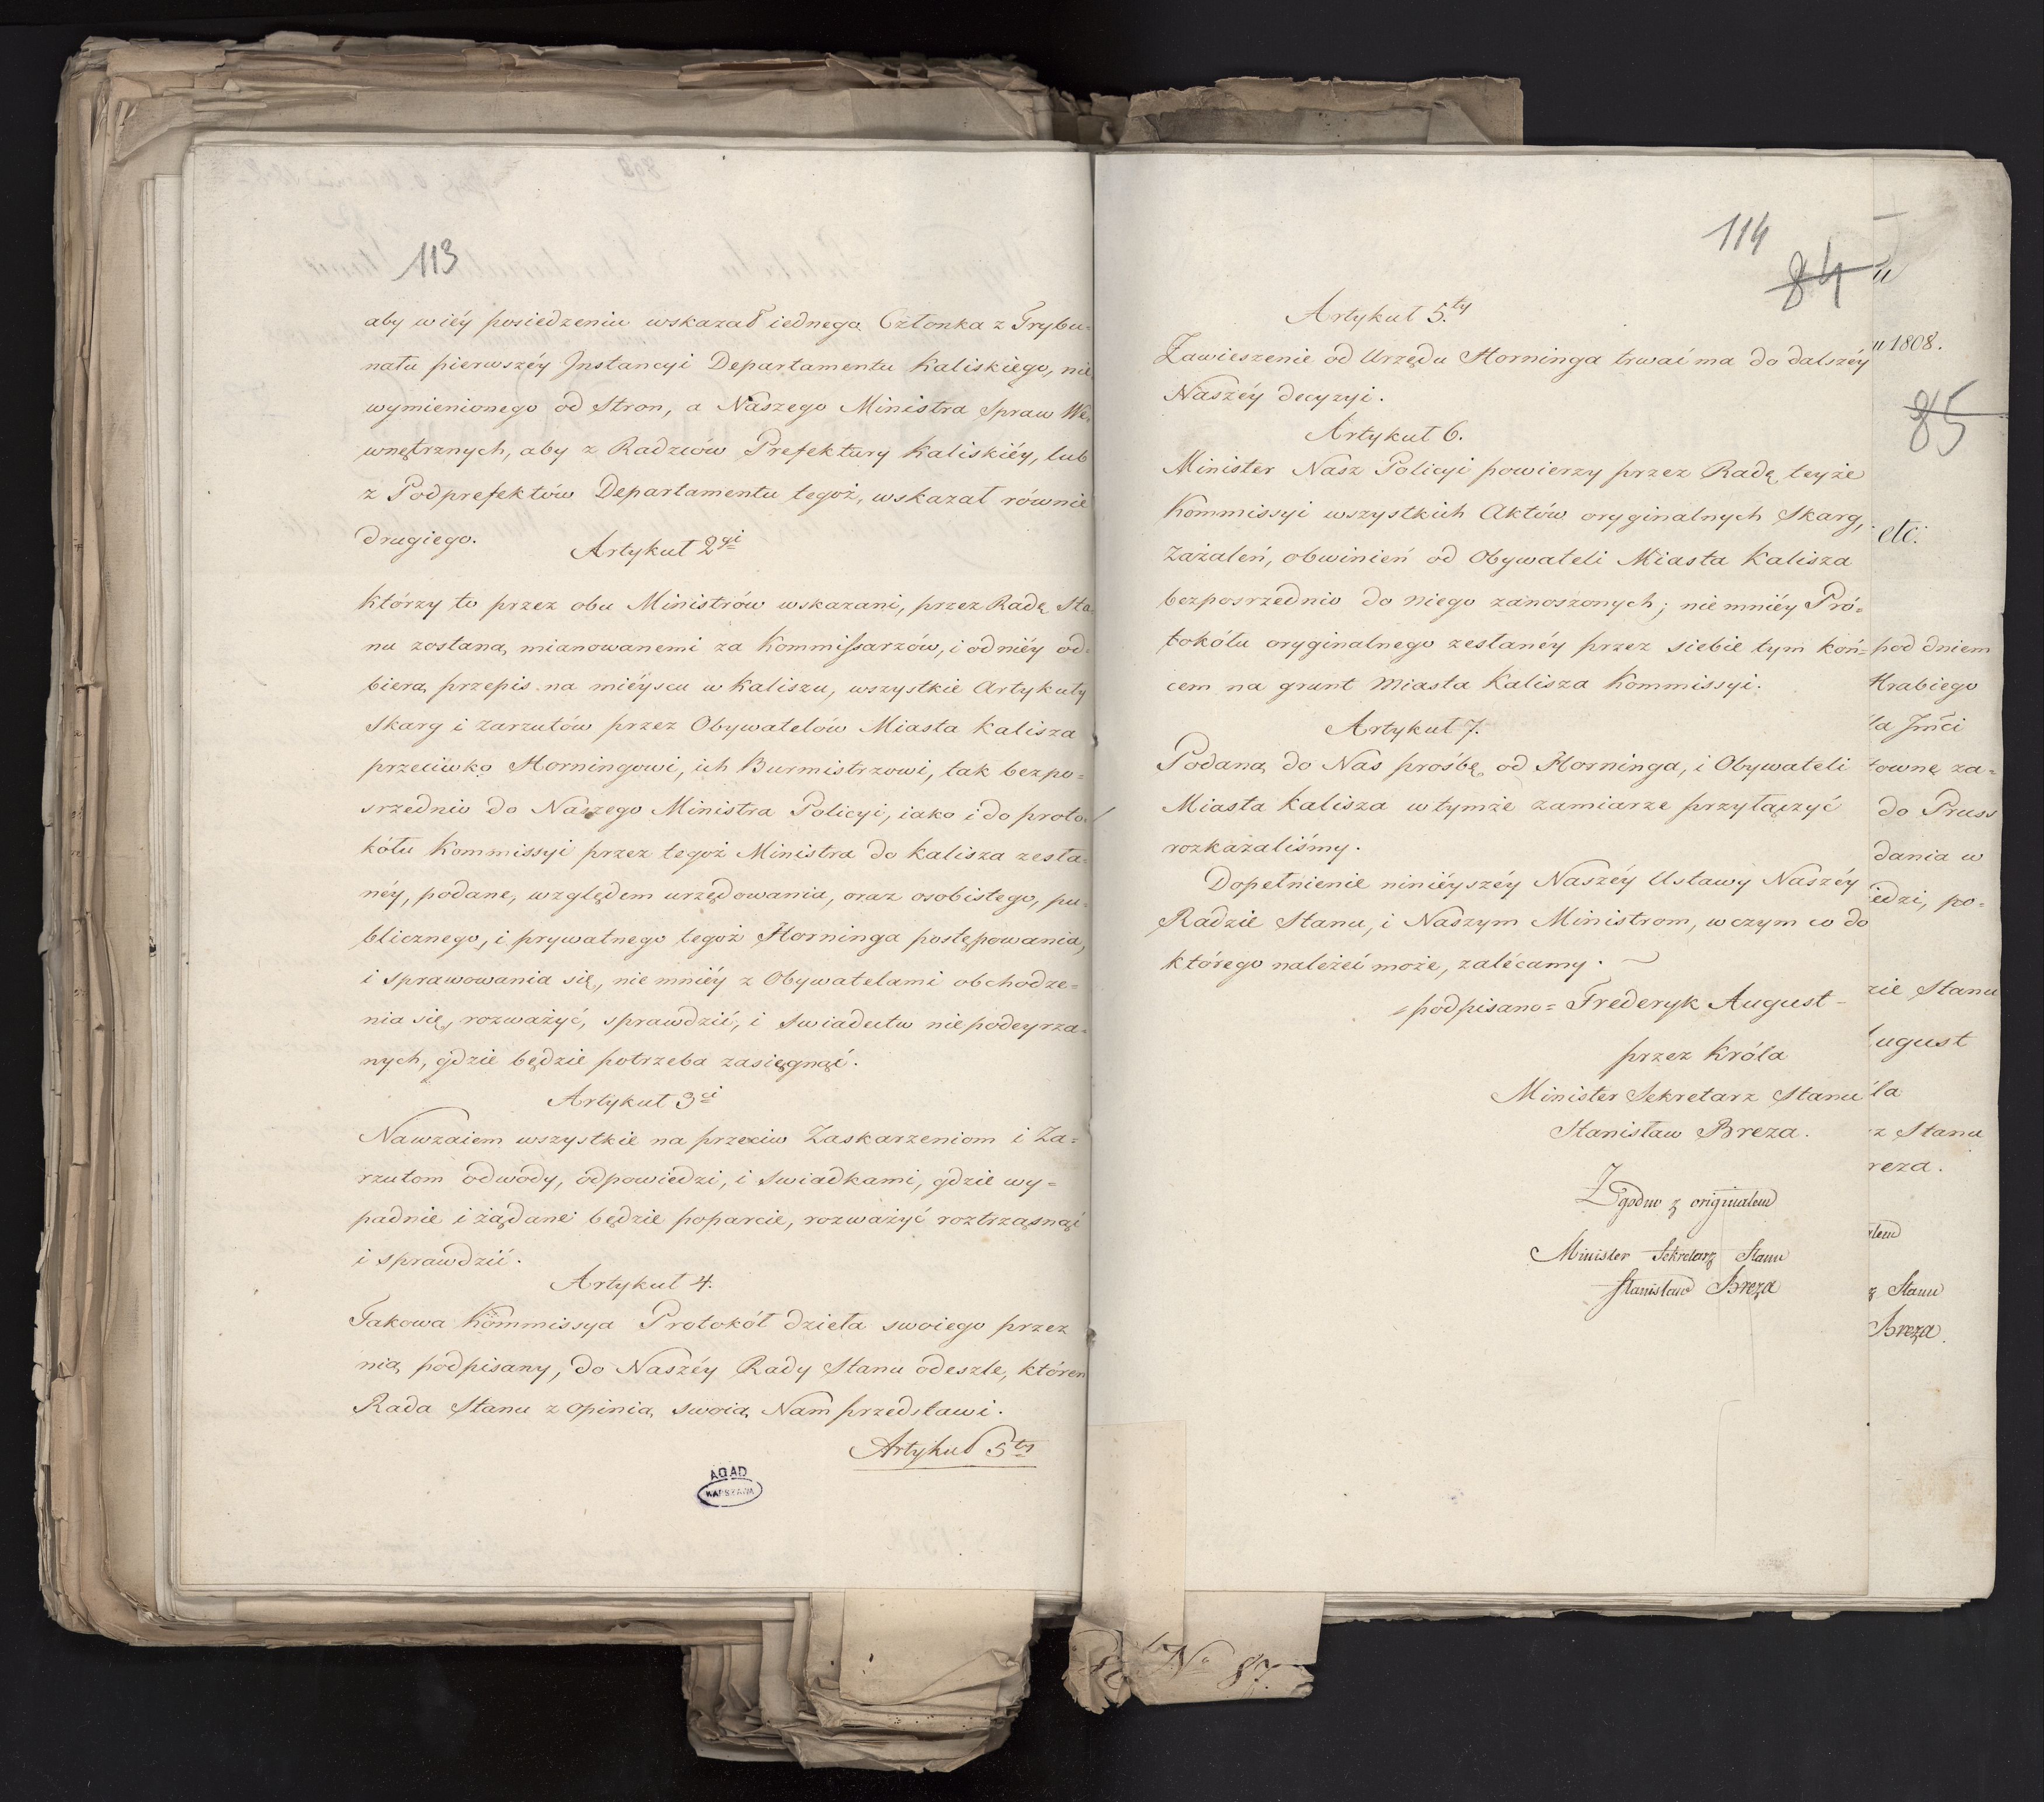 113
aby w iéy posiedzeniu wskazał iednego Członka z Trybu=
nału pierwszéy Instancyi Departamentu Kaliskiego, nie
wymienionego od Stron, a Naszego Ministra Spraw We=
wnętrznych, aby z Radzców Prefektury Kaliskiéy, lub
z Podprefektów Departamentu tegoż, wskazał równie
drugiego.
Artykuł 2gi
Którzy to przez obu Ministrów wskazani, przez Radę Sta=
nu zostaną mianowanemi za Kommissarzów, i od niéy od=
biorą przepis na mieyscu w Kaliszu, wszystkie Artykuły
Skarg i zarzutów przez Obywatelów Miasta Kalisza
przeciwko Horningowi, ich Burmistrzowi, tak bezpo=
srzednio do Naszego Ministra Policyi, iako i do proto=
kółu Kommissyi przez tegoż Ministra do Kalisza zesła=
néy, podane, względem urzędowania, oraz osobistego, pu=
blicznego, i prywatnego tegoż Horninga postępowania,
i sprawowania się, nie mniéy z Obywatelami obchodze=
nia się, rozważyć, sprawdzić, i swiadectw niepodeyrza=
nych, gdzie będzie potrzeba zasięgnąć.
Artykuł 3ci
Nawzaiem wszystkie na przeciw Zaskarzeniom i Za=
rzutom odwody, odpowiedzi, i swiadkami, gdzie wy=
padnie i żądane będzie poparcie, rozważyć roztrząsnąć
i sprawdzić.
Artykuł 4.
Takowa Kommissya Protokół dzieła swoiego przez
nią podpisany, do Naszéy Rady Stanu odeszle, któren
Rada Stanu z opinią swoią Nam przedstawi.
Artykuł 5ty
AGAD
WARSZAWA
114
84
Artykuł 5.ty
Zawieszenie od Urzędu Horninga trwać ma do dalszéy
Naszéy decyzyi.
Artykuł 6.
Minister Nasz Policyi powierzy przez Radę teyże
Kommissyi wszystkich Aktów oryginalnych Skarg,
Zażaleń, obwinień od Obywateli Miasta Kalisza
bezposrzednio do niego zanoszonych; nie mniéy Pró=
tokółu oryginalnego zesłanéy przez siebie tym koń=
cem na grunt Miasta Kalisza Kommissyi.
Artykuł 7.
Podaną do Nas proźbę od Horninga, i Obywateli
Miasta Kalisza w tymże zamiarze przyłączyć
rozkazaliśmy.
Dopełnienie ninieyszéy Naszéy Ustawy Naszéy
Radzie Stanu, i Naszym Ministrom, w czym co do
którego należeć może, zalécamy.
=podpisano= Frederyk August
przez Króla
Minister Sekretarz Stanu
Stanisław Breza.
Zgodno z originałem
Minister Sekretarz Stanu
Stanisław Breza
u 1808.
85
etc:
pod dniem
Hrabiego
la Jmci
townę za=
do Pruss
dania w
iedzi, po=
zie Stanu
ugust
la
z Stanu
reza.
łem
z Stanu
Breza.
No 87.